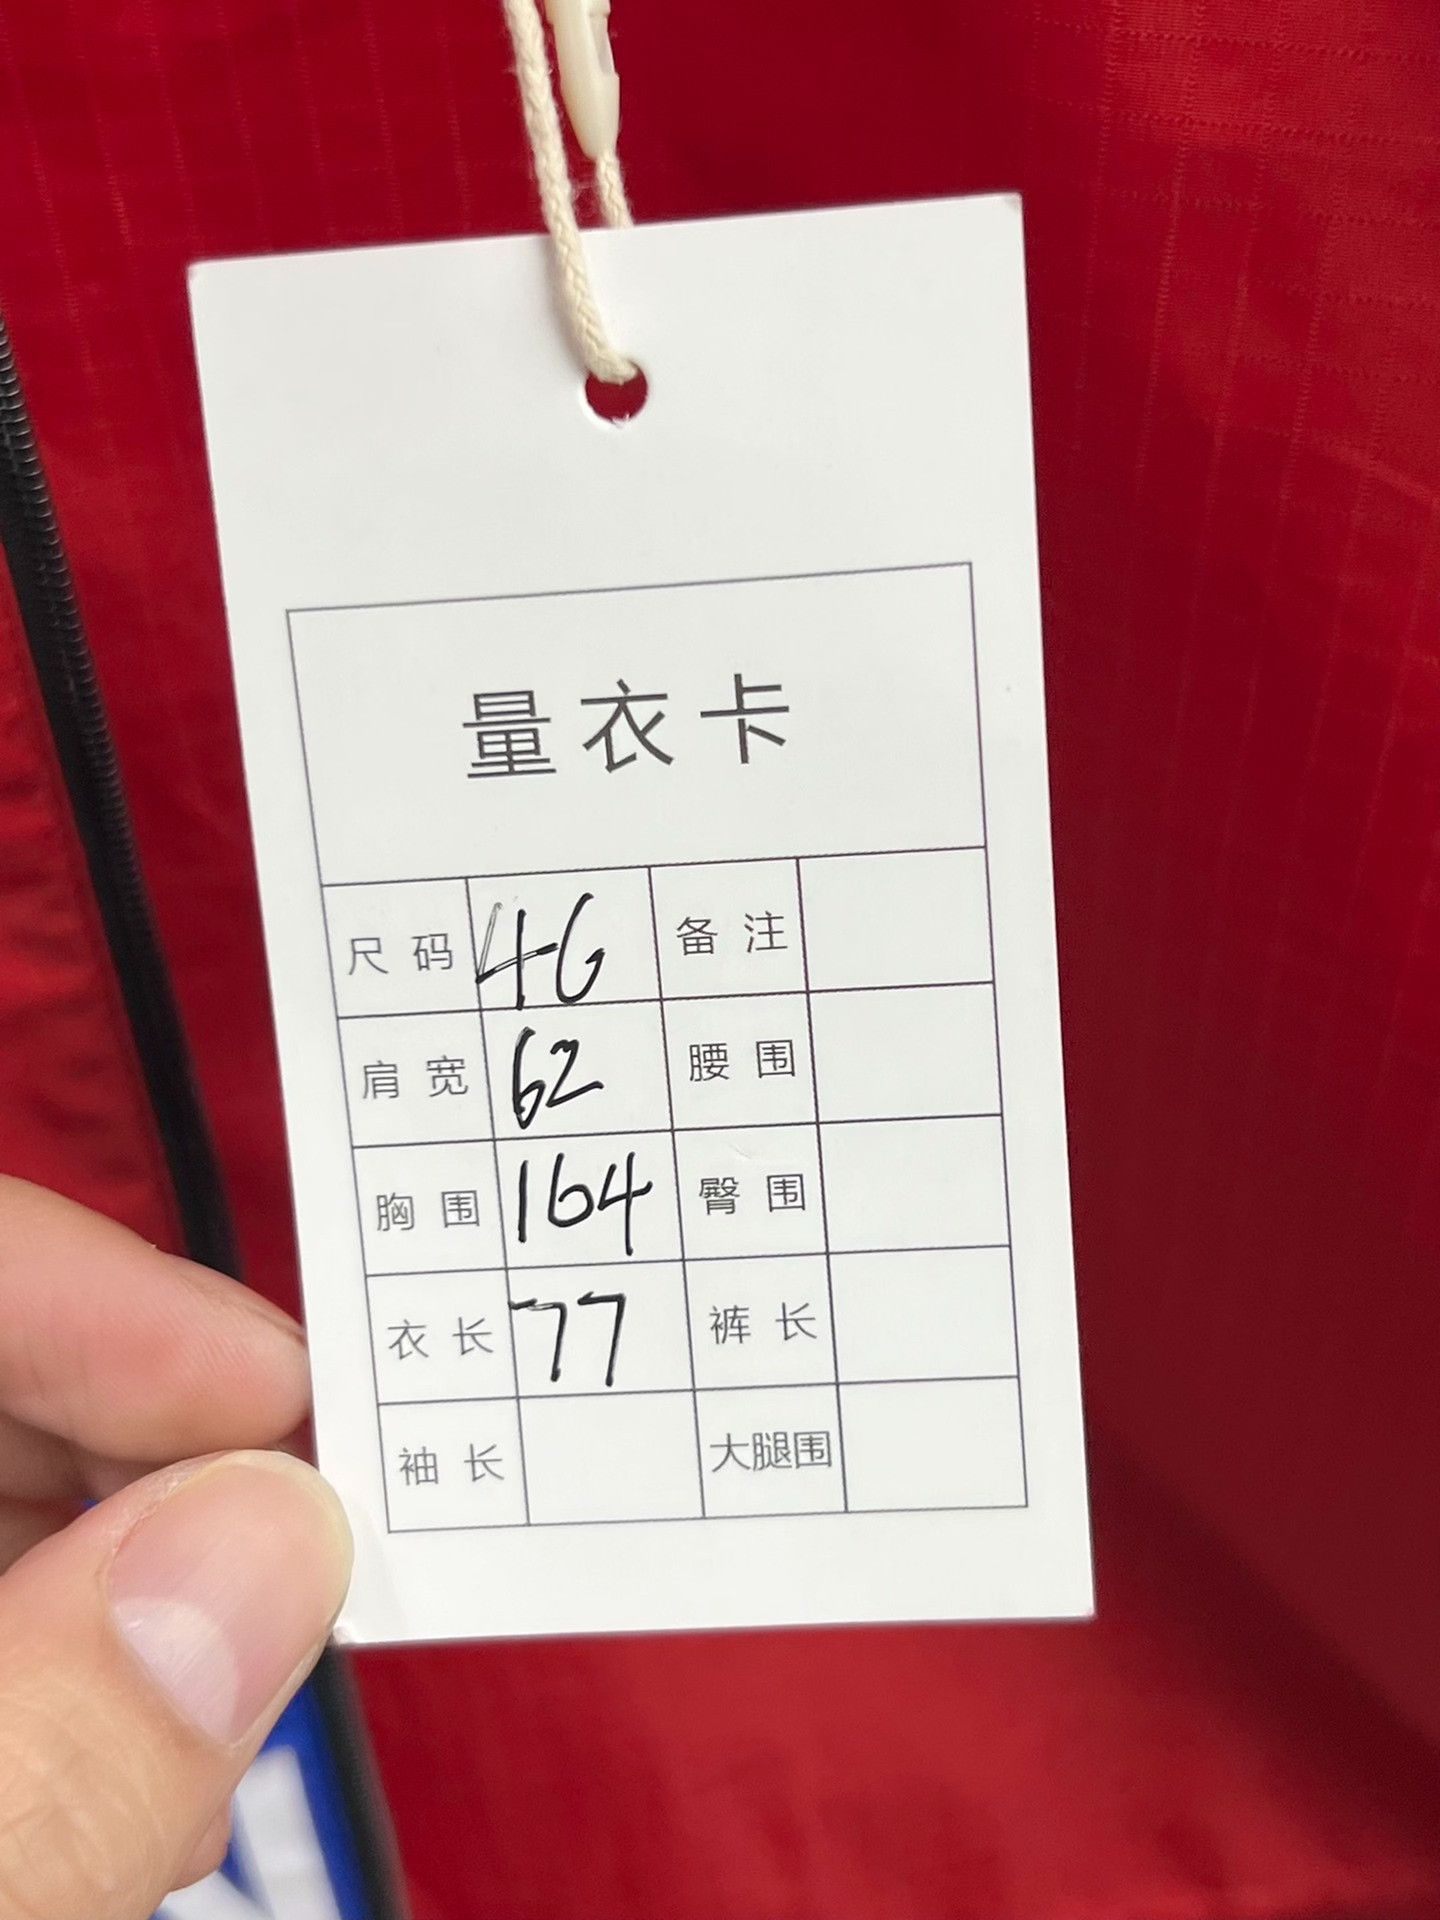 量衣卡
尺码 46 备注
肩宽 62 腰围
胸围 164 臀围
衣长 77 裤长
袖长 大腿围